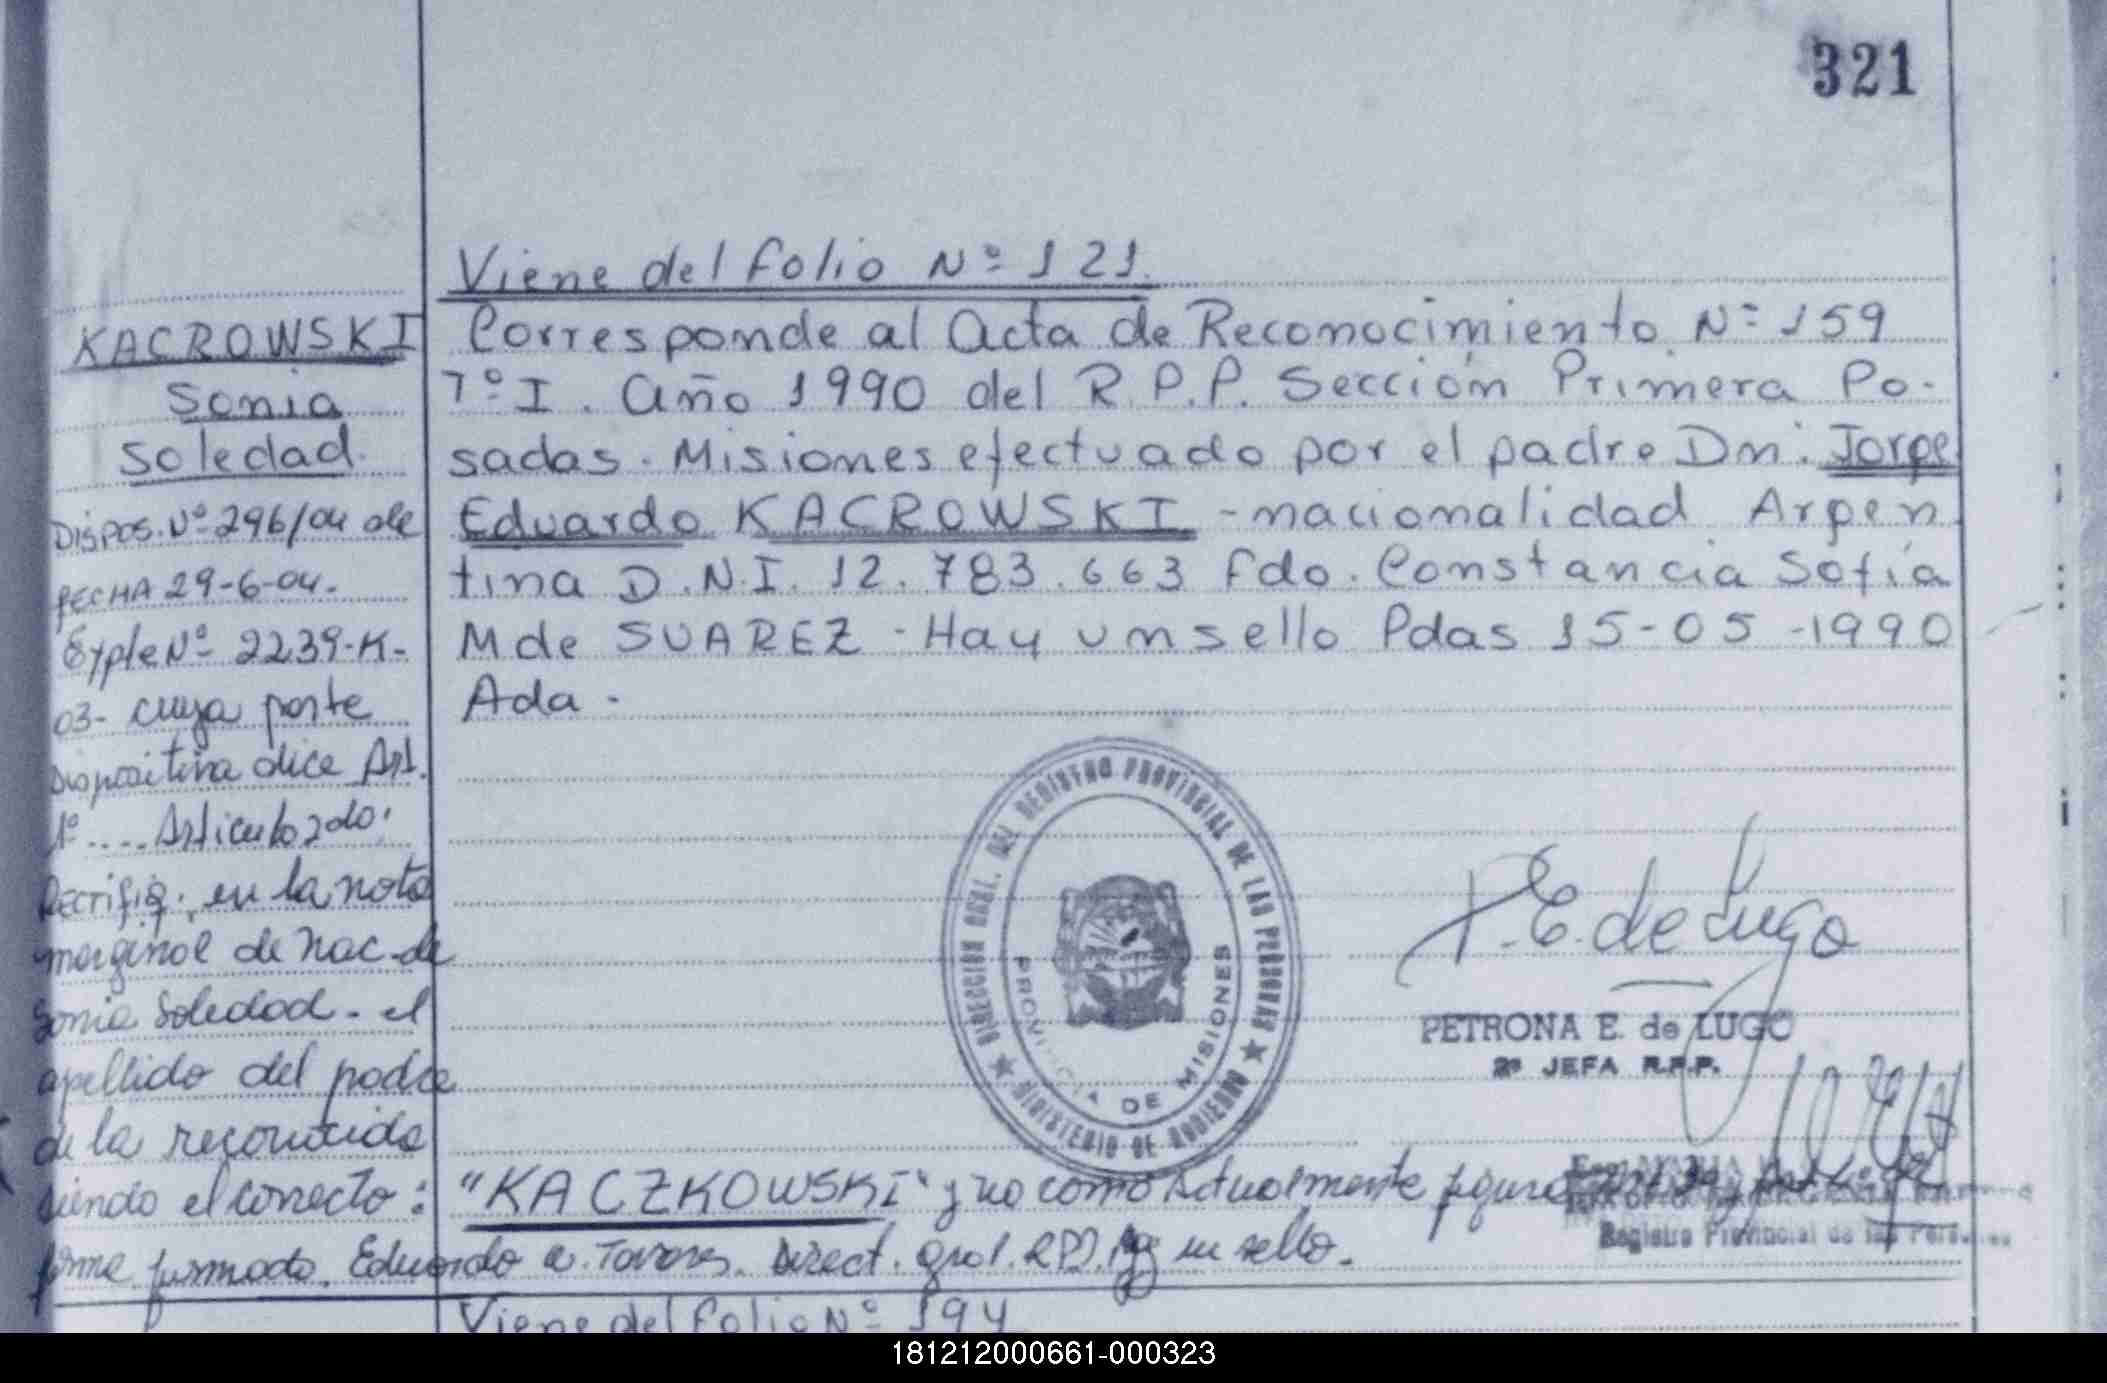 321
Viene del folio Nº 121.
KACROWSKI
Sonia
Soledad.
Corresponde al Acta de Reconocimiento Nº 159
Tº I. Año 1990 del R.P.P. Sección Primera Po-
sadas. Misiones efectuado por el padre Dn: Jorge
Eduardo KACROWSKI - nacionalidad Argen
tina D.N.I. 12.783.663 Fdo. Constancia Sofía
M de SUAREZ - Hay un sello Pdas 15-05-1990
Ada.
DISPOS. Nº 296/04 de
FECHA 29-6-04.
Expte Nº 2239-K-
03- cuya parte
Dispositiva dice Art.
1º .... Articulo 2do:
Rectifiq. en la nota
marginal de Nac. de
Sonia Soledad - el
apellido del padre
de la reconocida
siendo el correcto: "KACZKOWSKI" y no como actualmente figura
firma firmado. Eduardo A. Direct. gral. RPP. Hay un sello.
DIRECCION GRAL. DEL REGISTRO PROVINCIAL DE LAS PERSONAS
MINISTERIO DE GOBIERNO
PROVINCIA DE MISIONES
P. E. de Lugo
PETRONA E. de LUGO
2º JEFA R.P.P.
Registro Provincial de las Personas
Viene del folio Nº 194
181212000661-000323